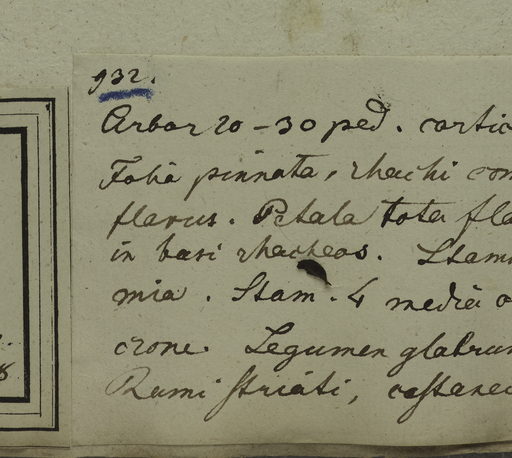 932.
Arbor 20-30 ped. cortic
Folia pinnata, rhachi com
flavus. Petala tota fla
in basi rhacheos. Stam
mia. Stam. 4 media
crone. Legumen glabrum
Rami striati, castane
8